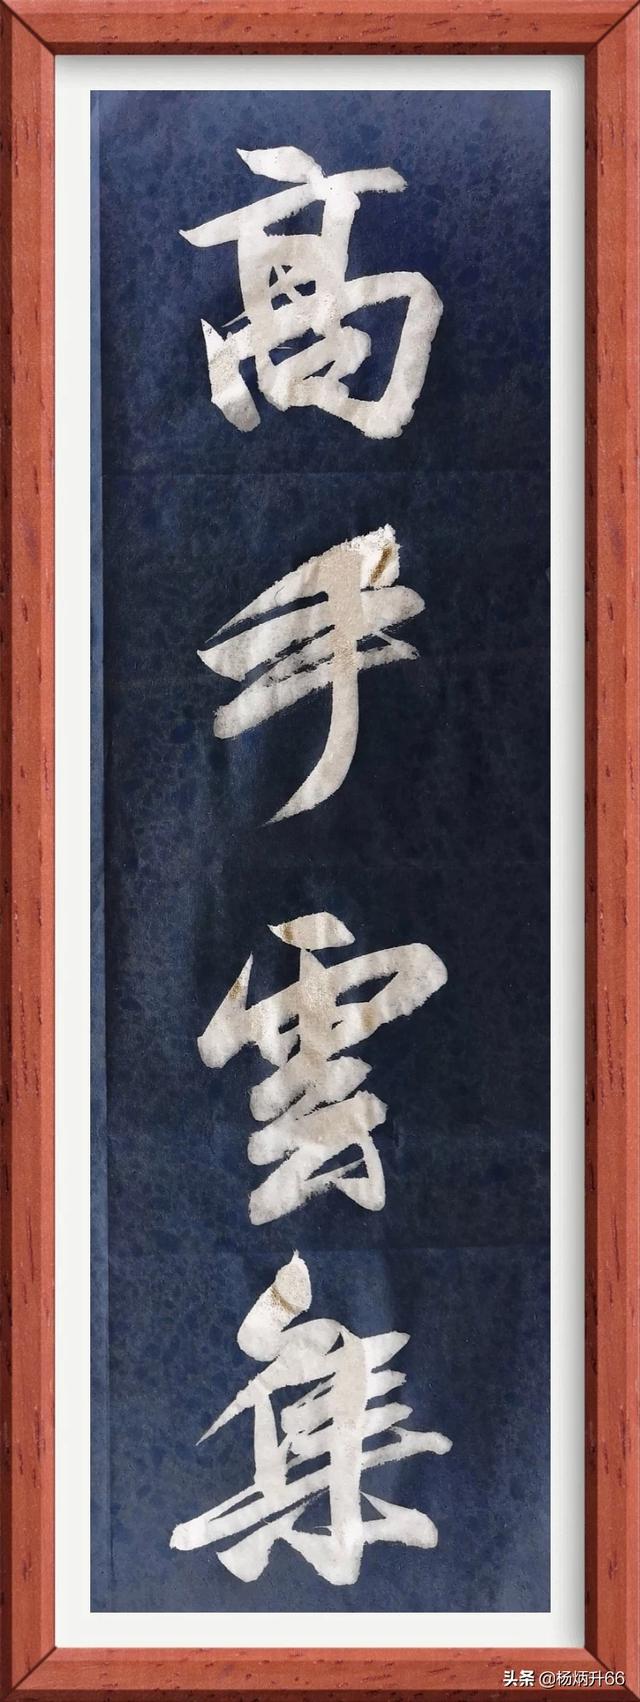 高手雲集
头条 @杨炳升66